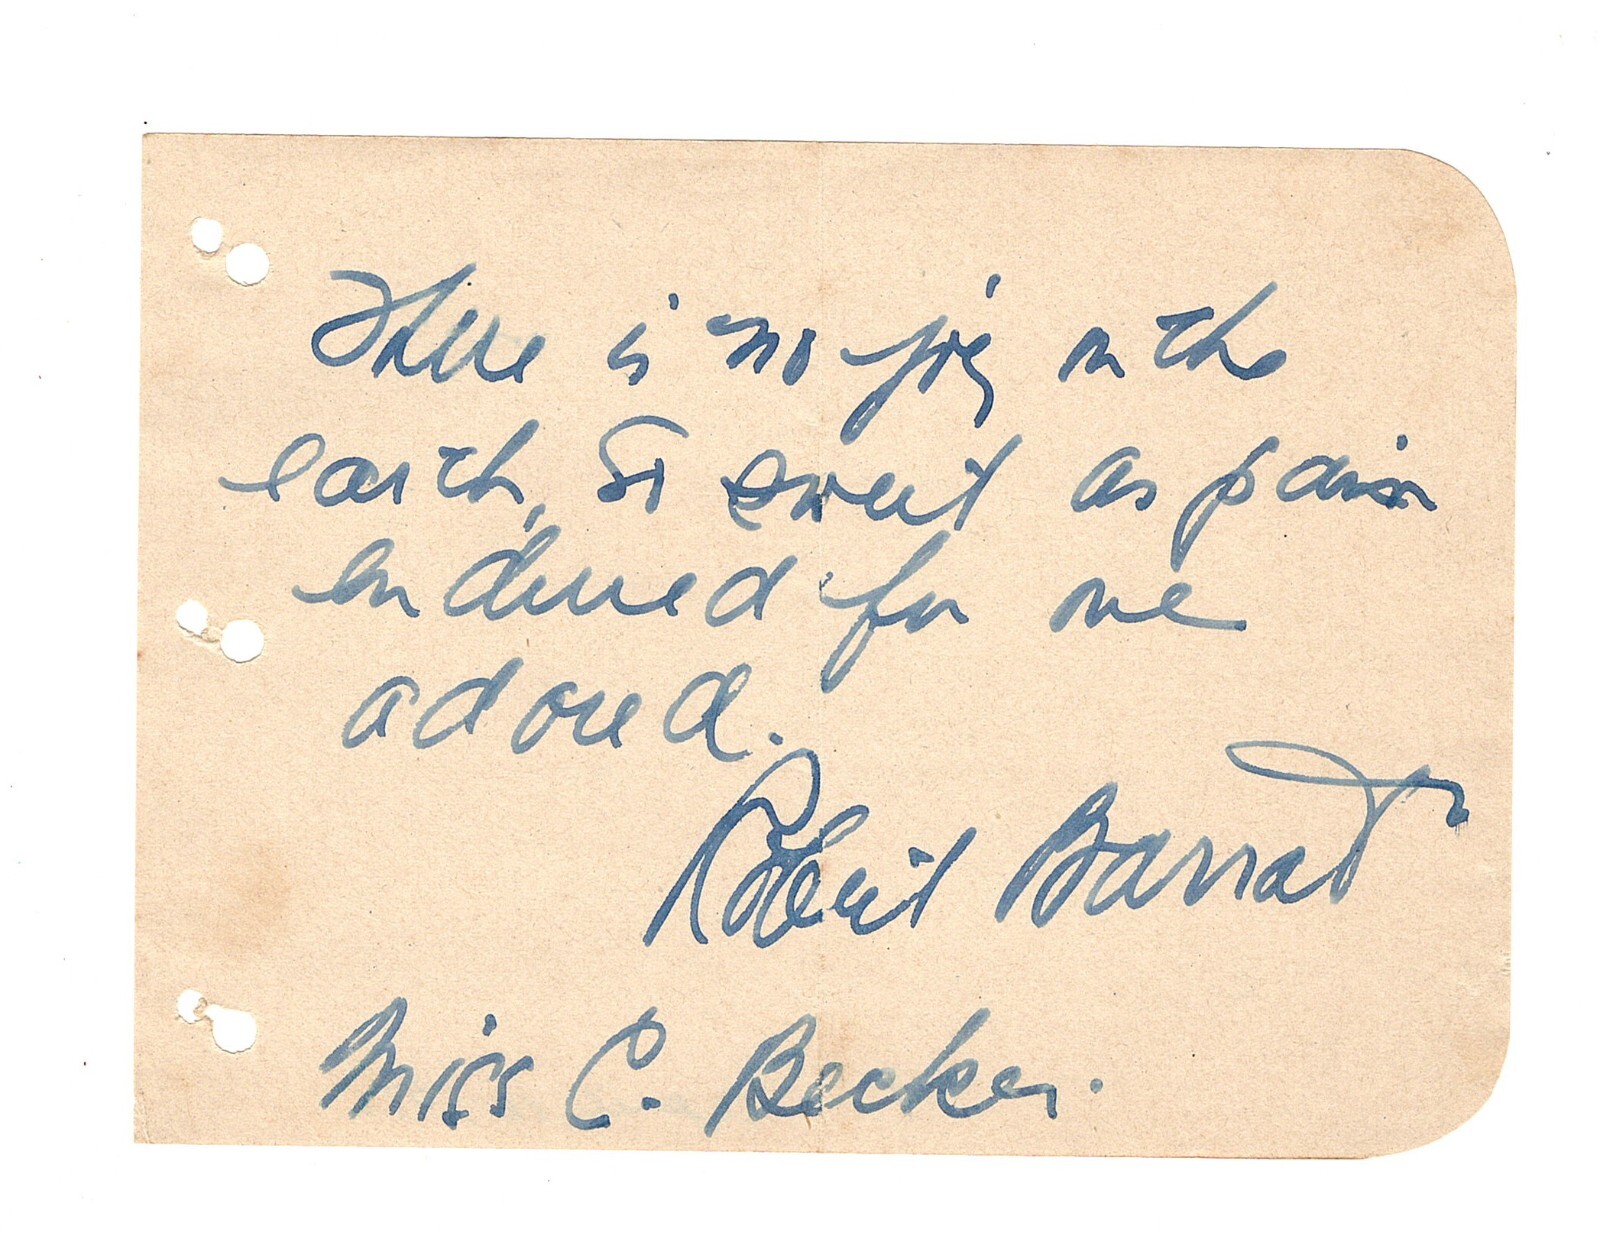 There is no joy on the
earth, so sweet as pain
endured for one
adored.
Robert Barrat
Miss C. Becker.